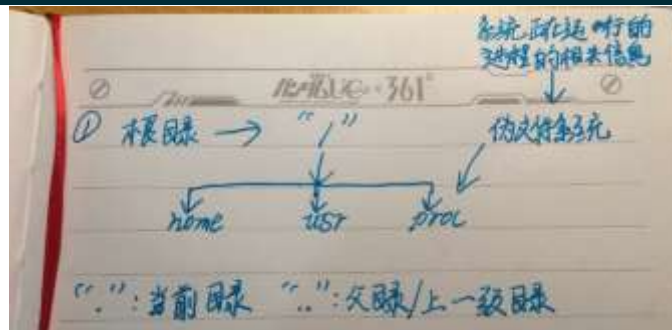 系统正在运行的
进程的相关信息
361°
① 根目录 → “/”
伪文件系统
home usr proc
“.”:当前目录 “..”:父目录/上一级目录